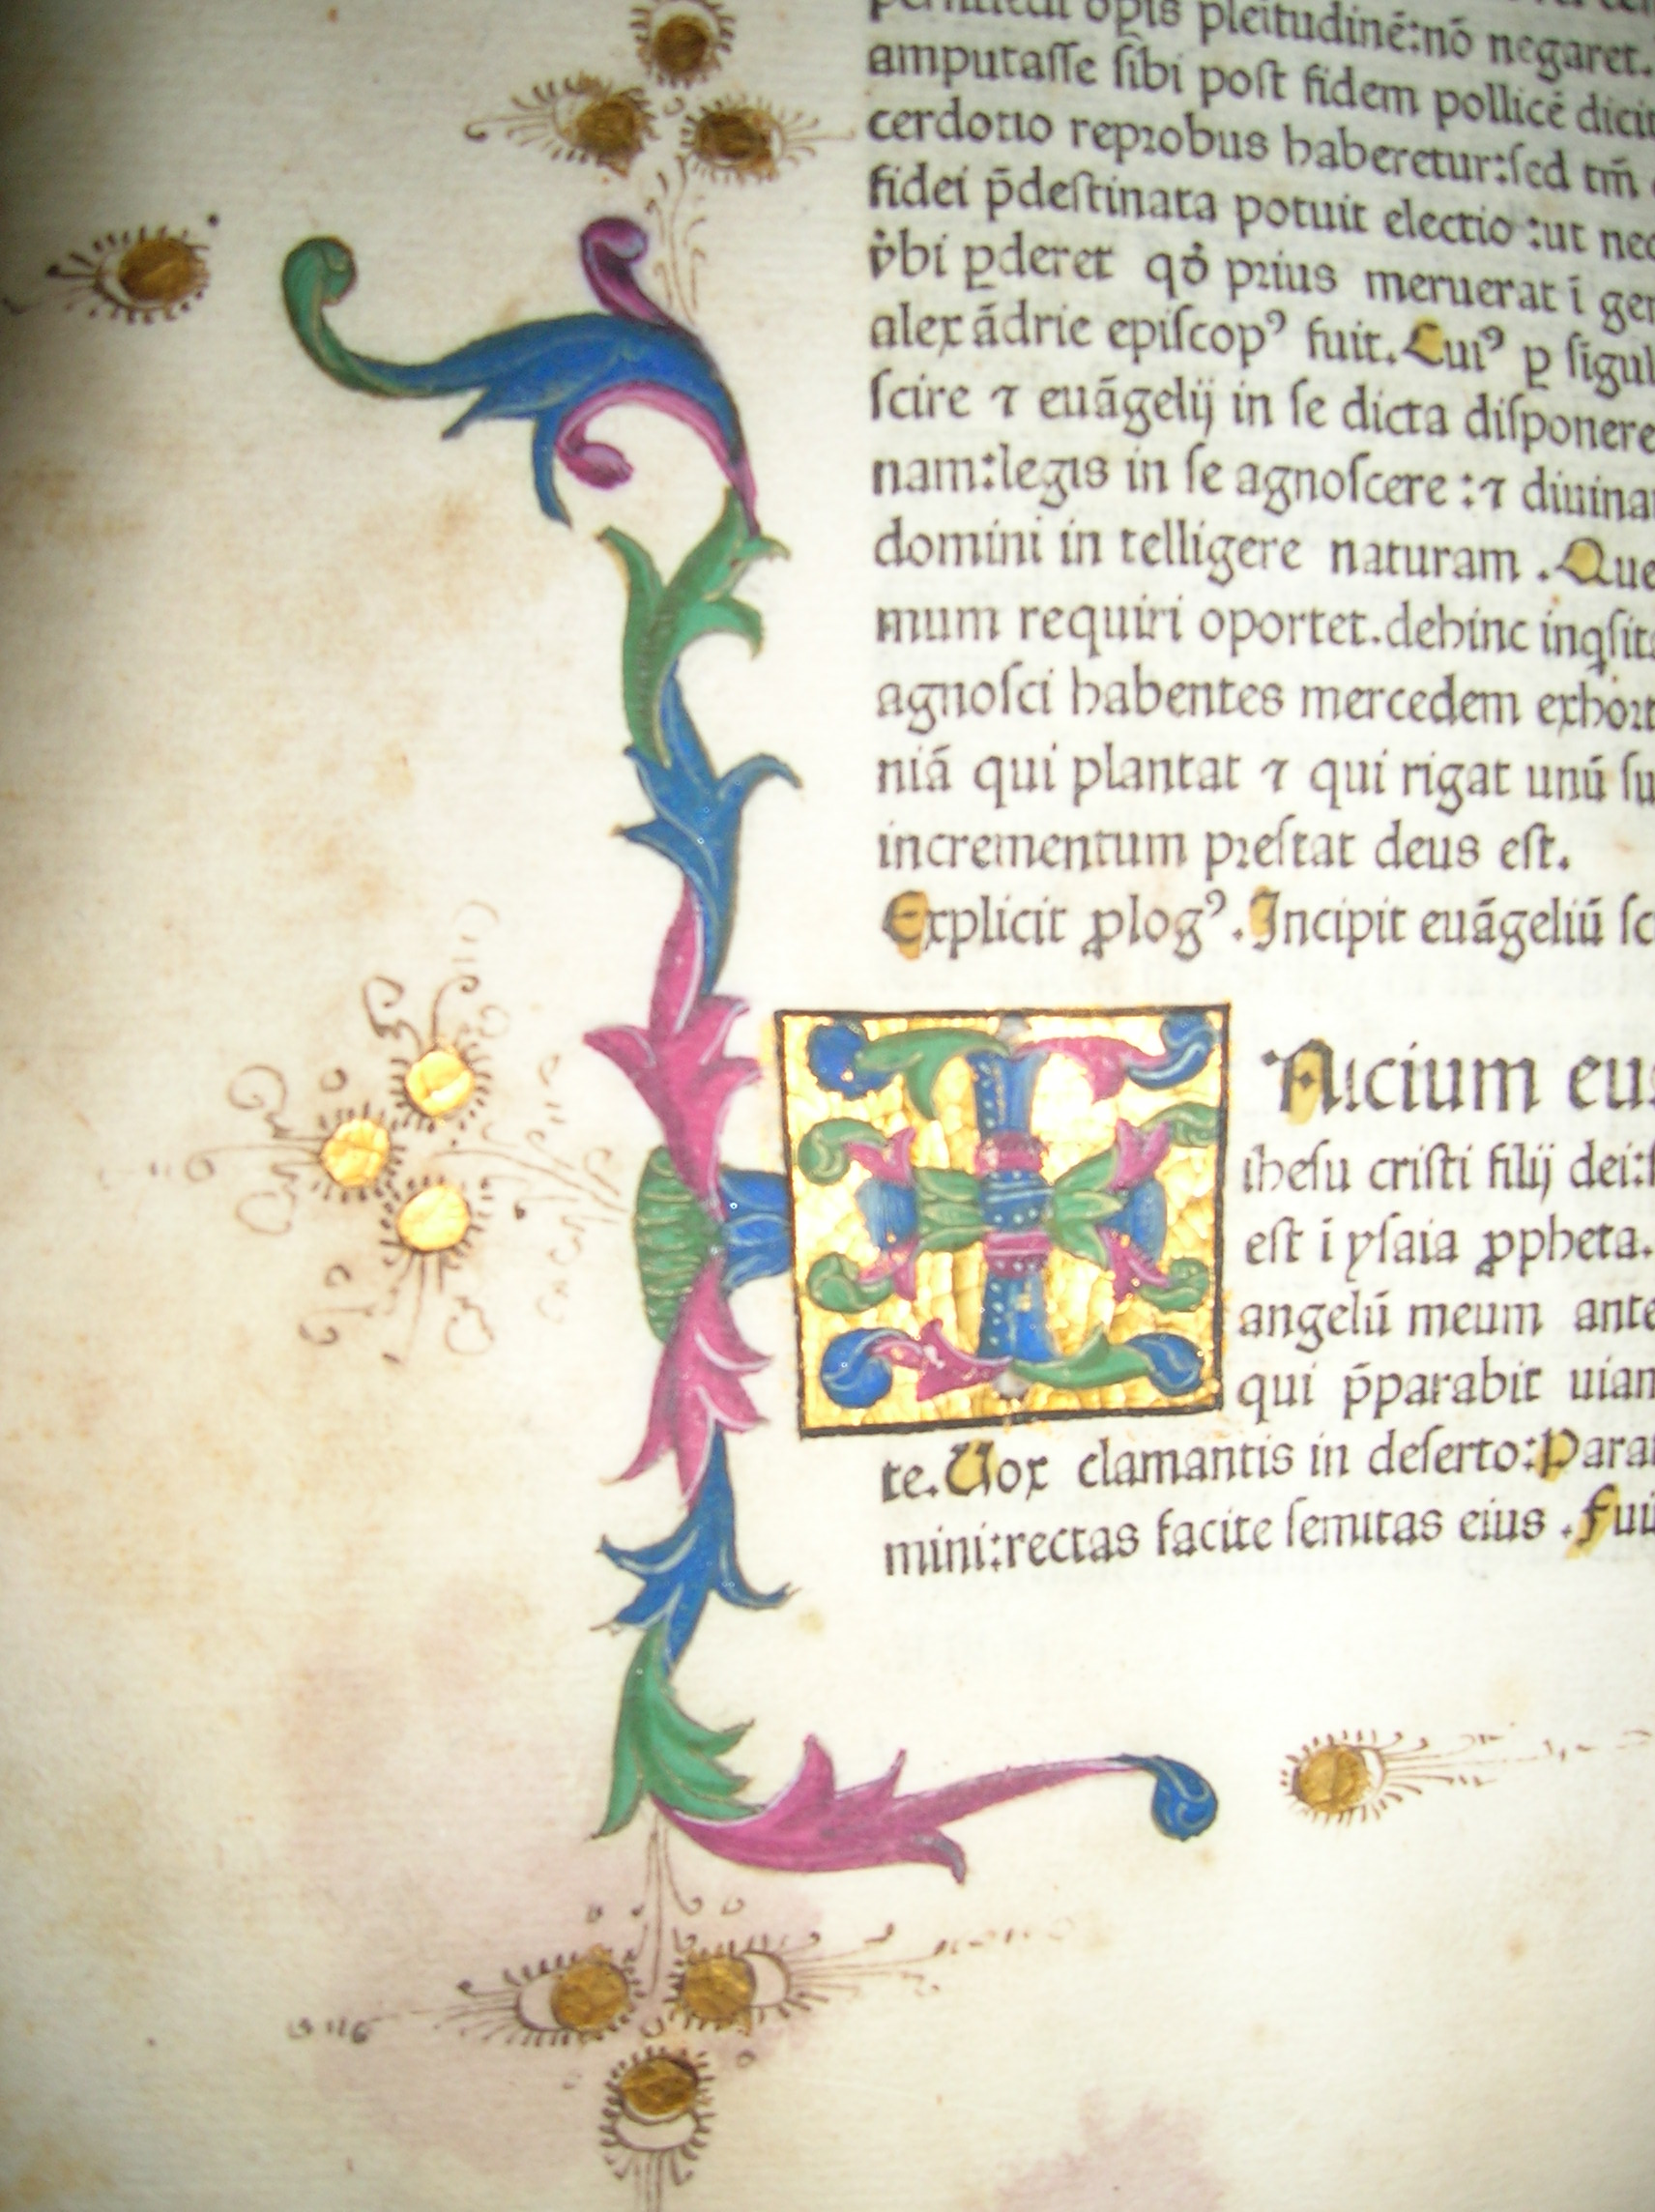 opis pleitudinē:nō negaret.
amputaſſe ſibi poſt fidem pollicē
cerdotio reprobus haberetur:ſed tm̄
fidei p̄deſtinata potuit electio :ut nec
ꝑderet qđ prius meruerat ī
alexādrie epiſcopꝰ fuit. Cuiꝰ ꝑ
ſcire ⁊ euāgelij in ſe dicta diſponere
nam:legis in ſe agnoſcere :⁊
domini in telligere naturam . Que
mum requiri oportet.dehinc
agnoſci habentes mercedem
niā qui plantat ⁊ qui rigat unū
incrementum preſtat deus eſt.
Explicit ꝓlogꝰ. Incipit euāgeliū
I
Nicium
iheſu criſti filij dei:
eſt ī yſaia ꝓpheta.
angelū meum ante
qui p̄parabit uiam
te. Vox clamantis in deſerto:
mini:rectas facite ſemitas eius .